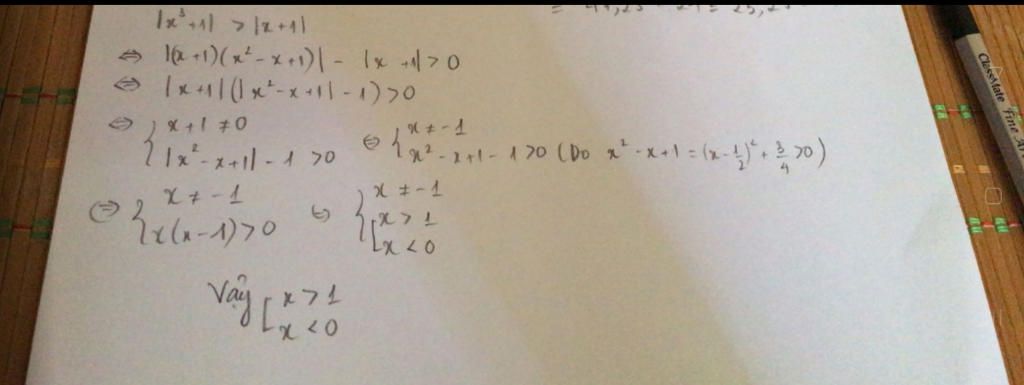 = 49,25 - 24 = 25,2
|x³+1| > |x+1|
⇔ |(x+1)(x²-x+1)| - |x+1| > 0
⇔ |x+1|(|x²-x+1| - 1) > 0
⇔ { x+1 ≠ 0
|x²-x+1| - 1 > 0
⇔ { x ≠ -1
x²-x+1-1 > 0 (Do x²-x+1 = (x-1/2)² + 3/4 > 0)
⇔ { x ≠ -1
x(x-1) > 0
⇔ { x ≠ -1
[ x > 1
x < 0
Vậy [ x > 1
x < 0
ClassMate Fine